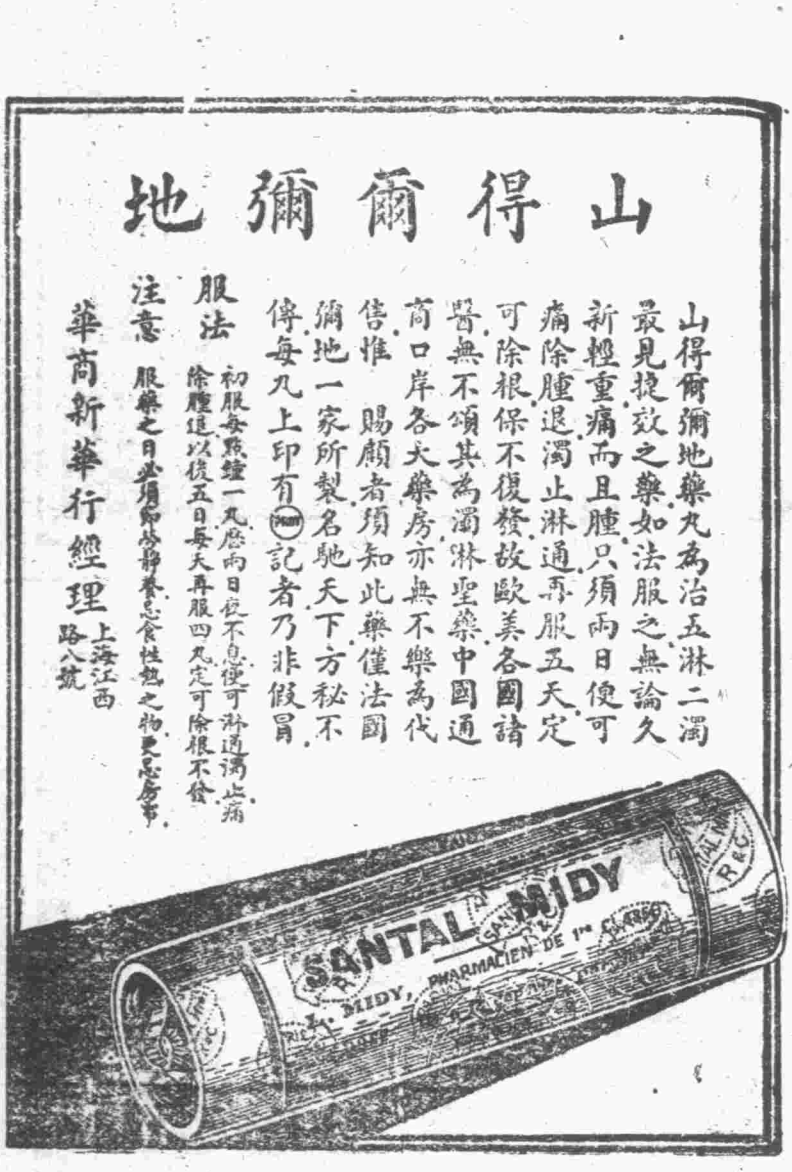 山得爾彌地
山得爾彌地藥丸為治五淋二濁
最見捷效之藥如法服之無論久
新輕重痛而且腫只須兩日便可
痛除腫退濁止淋通再服五天定
可除根保不復發故歐美各國諸
醫無不頌其為濁淋聖藥中國通
商口岸各大藥房亦無不樂為代
售惟 賜顧者須知此藥僅法國
彌地一家所製名馳天下方秘不
傳每丸上印有MIDY記者乃非假冒
服法
初服每點鐘一丸歷兩日夜不息便可淋通濁止痛
除腫退以後五日每天再服四丸定可除根不發
注意
服藥之日必須節勞靜養忌食性熱之物更忌房事
華商新華行經理
上海江西
路八號
SANTAL MIDY
L. MIDY, PHARMACIEN DE 1re
R & C